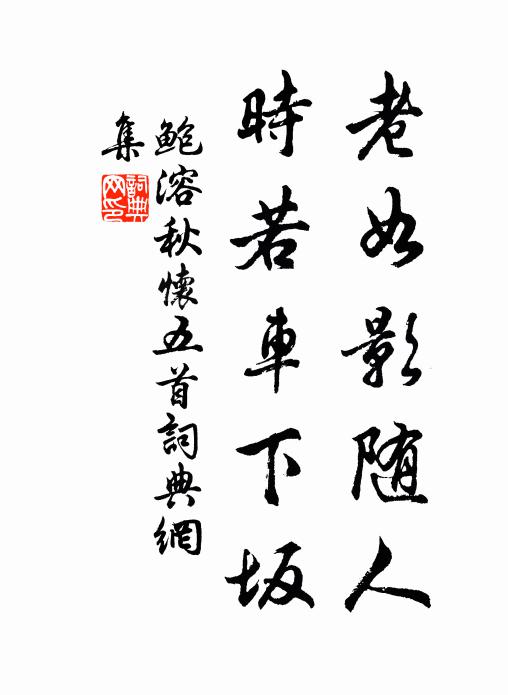 老如影隨人
時若車下坂
鮑溶秋懷五首詞典網
集
詞典
网印